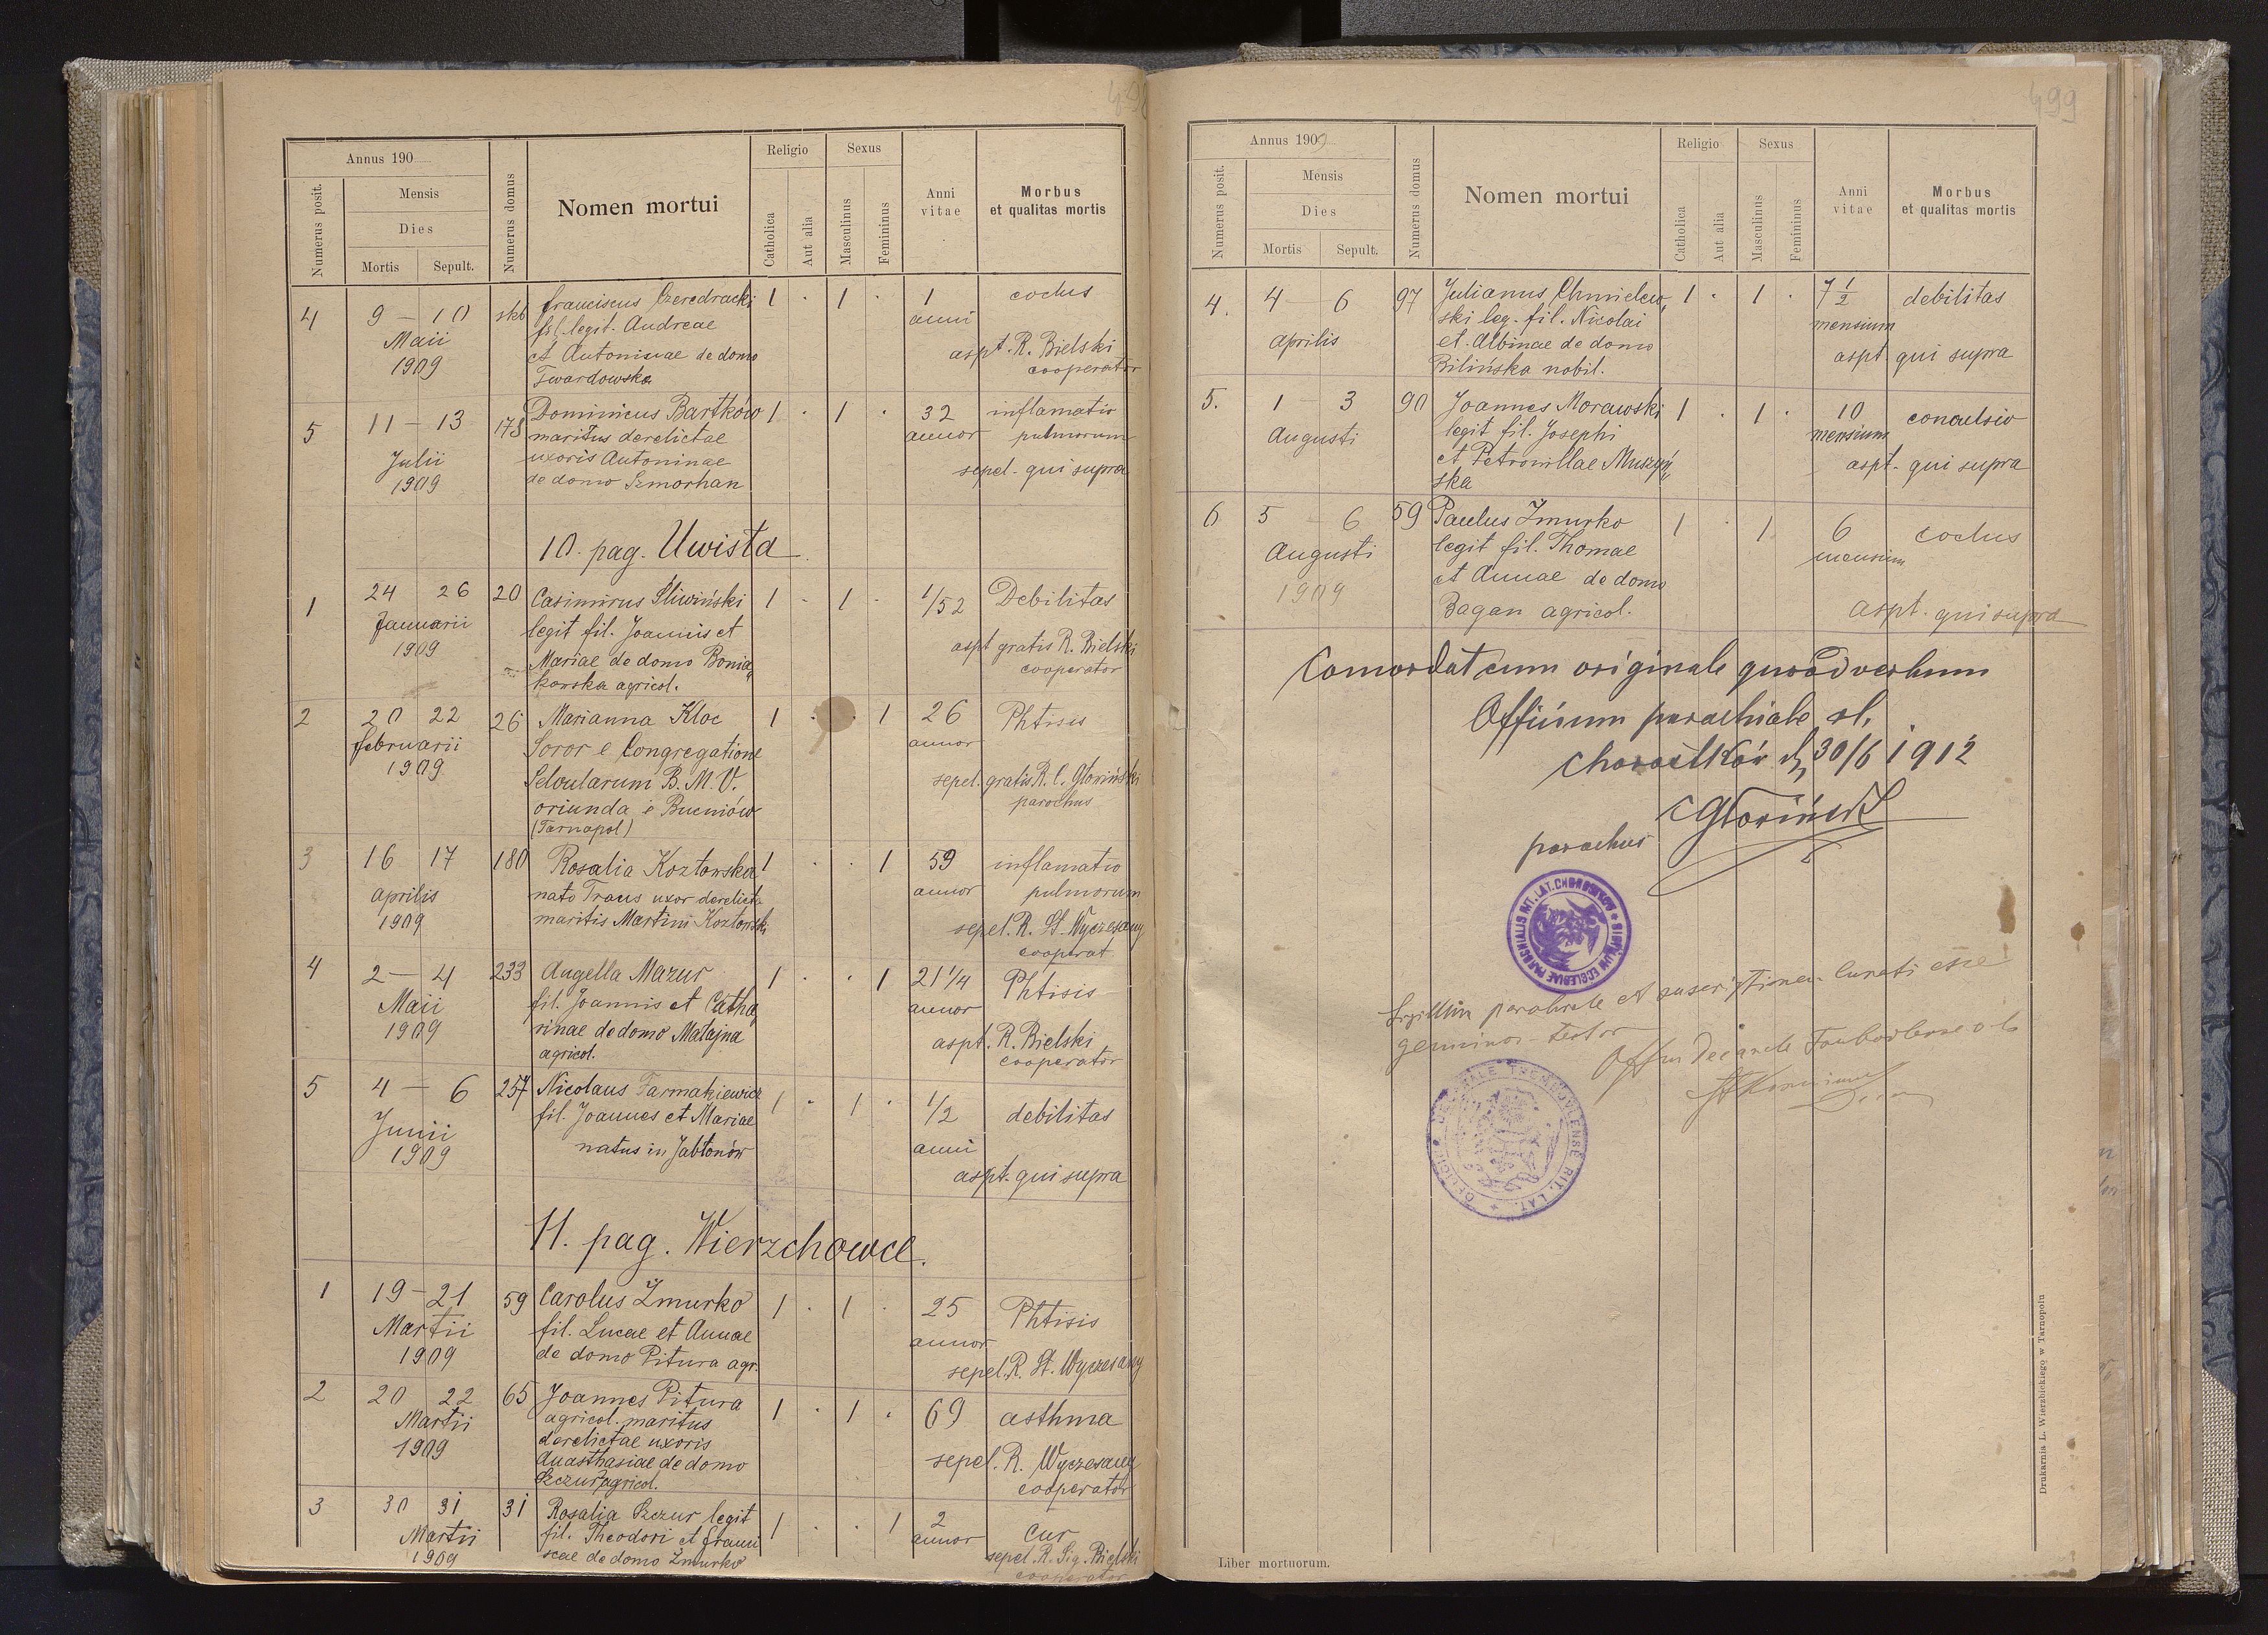 Annus 190
Numerus posit.
Mensis
Dies
Mortis
Sepult.
Numerus domus
Nomen mortui
Religio
Catholica
Aut alia
Sexus
Masculinus
Femininus
Anni vitae
Morbus
et qualitas mortis
4 9 – 10 Franciscus 1 · 1 · 1 coclus
Maii fil. legit. Andreae anni
1909 et Antoninae de domo aspt. R. Bielski
Twardowska cooperator
5 11 – 13 178 Dominicus Bartków 1 · 1 · 32 inflamatio
Julii maritus derelictae annor pulmorum
1909 uxoris Antoninae sepel. qui supra
de domo Szmorhan
10. pag. Uwista
1 24 26 20 Casimirus Śliwiński 1 · 1 · 1/52 Debilitas
Januarii legit fil. Joannis et
1909 Mariae de domo Bonia„ aspt gratis R. Bielski
kowska agricol. cooperator
2 20 22 26 Marianna Kloc 1 · 1 26 Phtisis
februarii Soror e Congregatione annor
1909 B. M. V. sepel. gratis R. C. Głoriński
oriunda e Bucniów parochus
(Tarnopol)
3 16 17 180 Rosalia Kozłowska 1 · · 1 59 inflamatio
aprilis nato Tracs uxor derelict annor pulmorum
1909 maritis Martini Kozłowski sepel. R. St. Wyczesany
cooperat
4 2 – 4 233 Angella Mazur 1 · · 1 21 1/4 Phtisis
Maii fil. Joannis et Catha„ annor
1909 rinae de domo Matajna aspt. R. Bielski
agricol. cooperator
5 4 – 6 257 Nicolaus Farmakiewicz 1 · 1 · 1/2 debilitas
Junii fil. Joannes et Mariae anni
1909 natus in Jabłonów aspt. qui supra
11. pag. Wierzchowce.
1 19 – 21 59 Carolus Żmurko 1 · 1 · 25 Phtisis
Martii fil. Lucae et Annae annor
1909 de domo Pitura agr. sepel. R. St. Wyczesany
2 20 22 65 Joannes Pitura 1 · 1 · 69 asthma
Martii agricol. maritus
1909 derelictae uxoris sepel. R. Wyczesany
Anasthasiae de domo cooperator
Szczur agricol.
3 30 31 31 Rosalia Szczur legit 1 · · 1 2 Cur
Martii fil. Theodori et Franci annor sepel. R. Sig. Bielski
1909 scae de domo Żmurko cooperator
499
Annus 1909
Numerus posit.
Mensis
Dies
Mortis
Sepult.
Numerus domus
Nomen mortui
Religio
Catholica
Aut alia
Sexus
Masculinus
Femininus
Anni vitae
Morbus
et qualitas mortis
4. 4 6 97 Julianus Chmielew„ 1 · 1 · 7 1/2 debilitas
aprilis ski leg. fil. Nicolai mensium
et Albinae de domo aspt qui supra
Bilińska nobil.
5. 1 – 3 90 Joannes Morawski 1 · 1 · 10 convulsio
Augusti legit fil. Josephi mensium
et Petronillae Muszyń„ aspt. qui supra
ska
6 5 – 6 59 Paulus Żmurko 1 · 1 6 coclus
Augusti legit fil. Thomae mensium
1909 et Annae de domo
Bagan agricol. aspt. qui supra
Concordat cum originale quoad verbum
Officium parochiale r. l.
Chorostków d. 30/6 1912
Głoriński
parochus
SIGILLUM ECCLESIAE PAROCHIALIS RIT. LAT. CHOROSTKÓW
Sigillum parochiale et suscriptionem Curati esse
genuinos testor
Offm Decanale
OFFICIUM DECANALE TREMBOVLENSE RIT. LAT.
Liber mortuorum.
Drukarnia L. Wierzbickiego w Tarnopolu